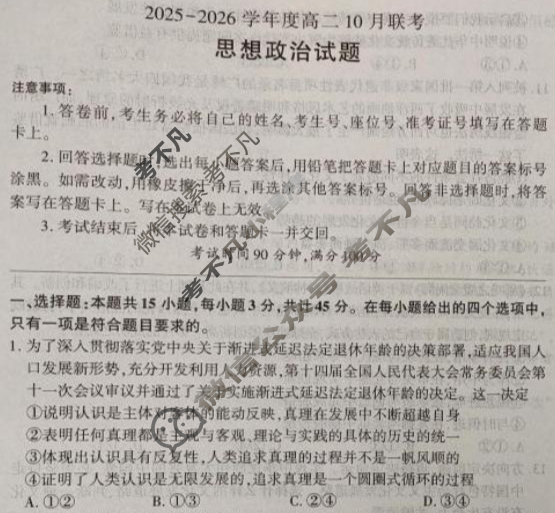 2025-2026学年度高二10月联考
思想政治试题
注意事项：
1. 答卷前,考生务必将自己的姓名、考生号、座位号、准考证号填写在答题
卡上。
2. 回答选择题时,选出每小题答案后,用铅笔把答题卡上对应题目的答案标号
涂黑。如需改动,用橡皮擦干净后,再选涂其他答案标号。回答非选择题时,将答
案写在答题卡上。写在本试卷上无效。
3. 考试结束后,将本试卷和答题卡一并交回。
考试时间90分钟,满分100分
一、选择题:本题共15小题,每小题3分,共计45分。在每小题给出的四个选项中,
只有一项是符合题目要求的。
1. 为了深入贯彻落实党中央关于渐进式延迟法定退休年龄的决策部署,适应我国人
口发展新形势,充分开发利用人力资源,第十四届全国人民代表大会常务委员会第
十一次会议审议并通过了关于实施渐进式延迟法定退休年龄的决定。这一决定
①说明认识是主体对客体的能动反映,真理在发展中不断超越自身
②表明任何真理都是主观与客观、理论与实践的具体的历史的统一
③体现出认识具有反复性,人类追求真理的过程并不是一帆风顺的
④证明了人类认识是无限发展的,追求真理是一个圆圈式循环的过程
A. ①② B. ①③ C. ②④ D. ③④
考不凡
微信搜索考不凡
考不凡
微信公众号 考不凡